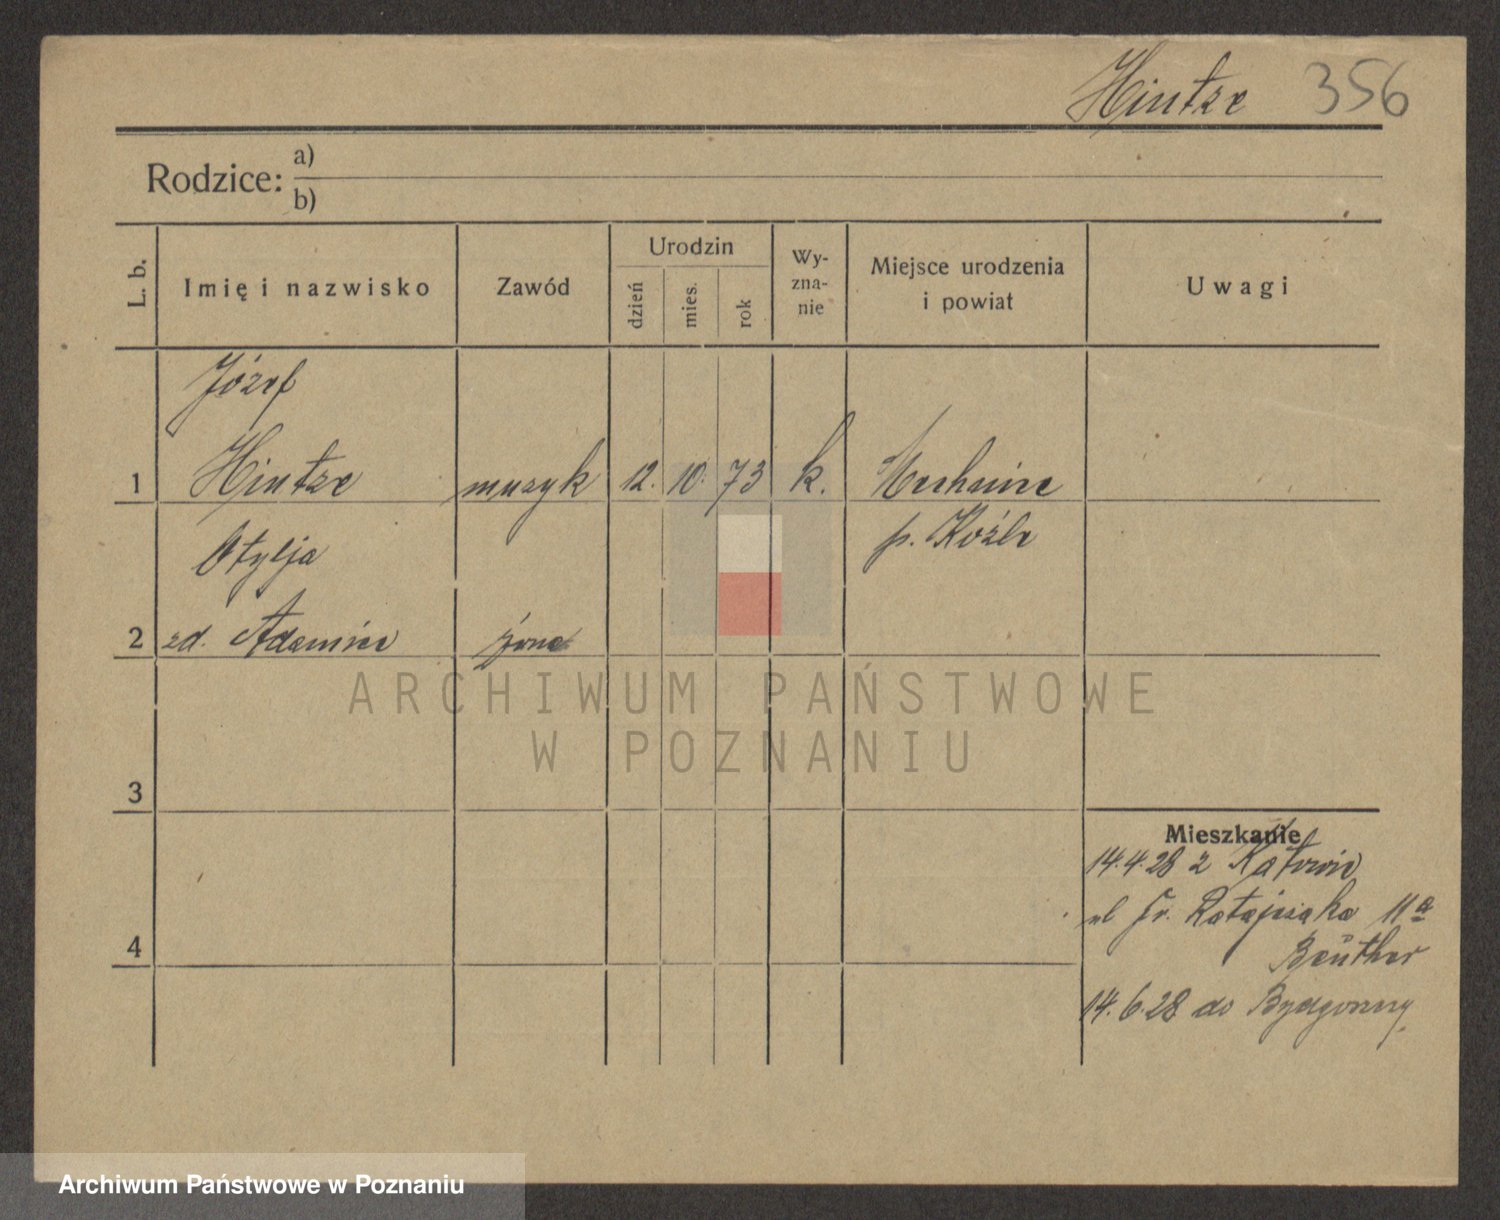 Hintze 356
Rodzice: a)
b)
L. b.
Imię i nazwisko
Zawód
Urodzin
dzień
mies.
rok
Wy-
zna-
nie
Miejsce urodzenia
i powiat
Uwagi
Józef
1 Hintze muzyk 12. 10. 73 k. Mechnice
p. Koźle
Otylja
2 zd. Adamiec żona
3
4
Mieszkanie
14.4.28 z Katowic
ul Fr. Ratajczaka 11a
Beuther
14.6.28 do Bydgoszczy
ARCHIWUM PAŃSTWOWE
W POZNANIU
Archiwum Państwowe w Poznaniu